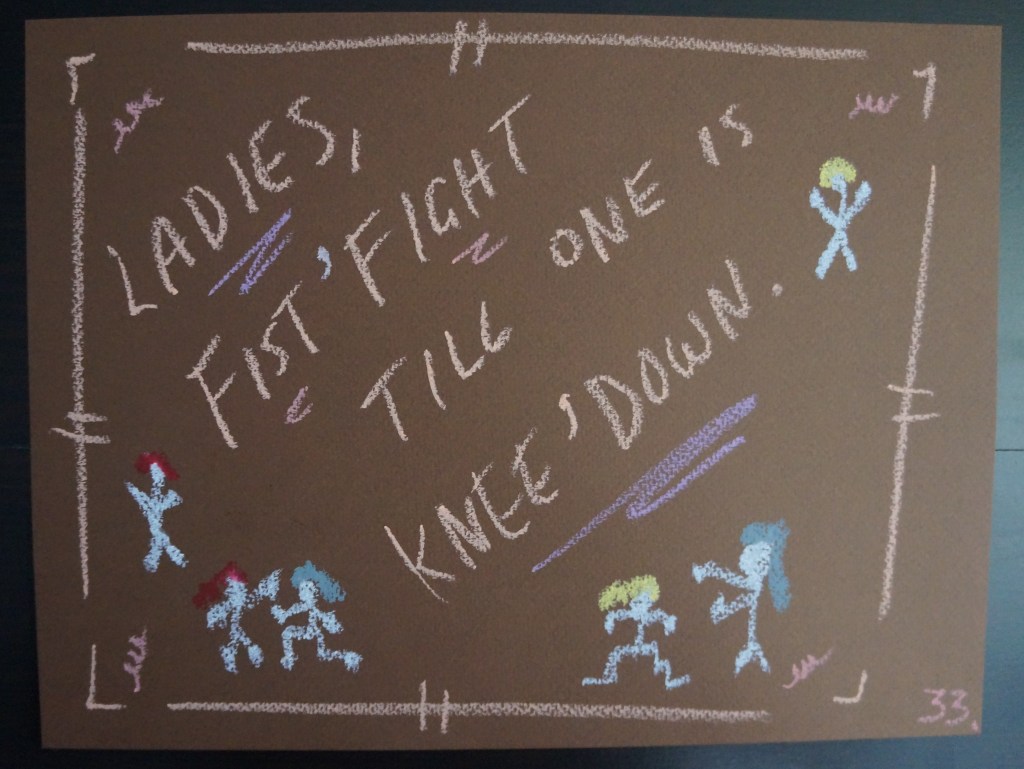 LADIES,
FIST'FIGHT
TILL ONE IS
KNEE'DOWN.
33.